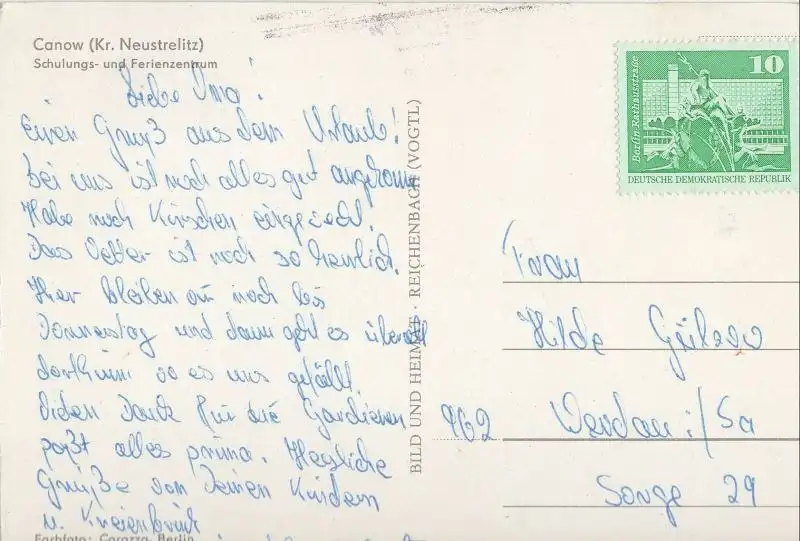 Canow (Kr. Neustrelitz)
Schulungs- und Ferienzentrum
Liebe Oma!
Einen Gruß aus dem Urlaub!
Bei uns ist noch alles gut
Habe noch Kirschen eingeweckt.
Das Wetter ist noch so herrlich.
Hier bleiben wir noch bis
Donnerstag und dann geht es überall
dorthin wo es uns gefällt
Vielen Dank für die Gardienen
paßt alles prima. Herzliche
Grüße von Deinen Kindern
u.
Farbfoto: Carazza, Berlin
BILD UND HEIMAT · REICHENBACH (VOGTL)
10
Berlin Rathausstraße
DEUTSCHE DEMOKRATISCHE REPUBLIK
Frau
Hilde
962 Werdau i/Sa
Sorge 29